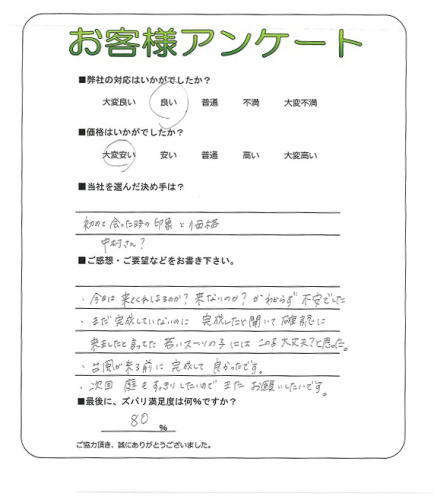 お客様アンケート
■弊社の対応はいかがでしたか？
大変良い 良い 普通 不満 大変不満
■価格はいかがでしたか？
大変安い 安い 普通 高い 大変高い
■当社を選んだ決め手は？
初めて会った時の印象と価格
中村さん？
■ご感想・ご要望などをお書き下さい。
・今日は来てくれるのか？来ないのか？かわからず不安でした
・まだ完成していないのに 完成したと聞いて確認に
来ましたと言ってた 若いスーツの子には この子大丈夫？と思った。
・台風が来る前に完成して良かったです。
・次回 庭もすっきりしたいので またお願いしたいです。
■最後に、ズバリ満足度は何%ですか？
80 %
ご協力頂き、誠にありがとうございました。